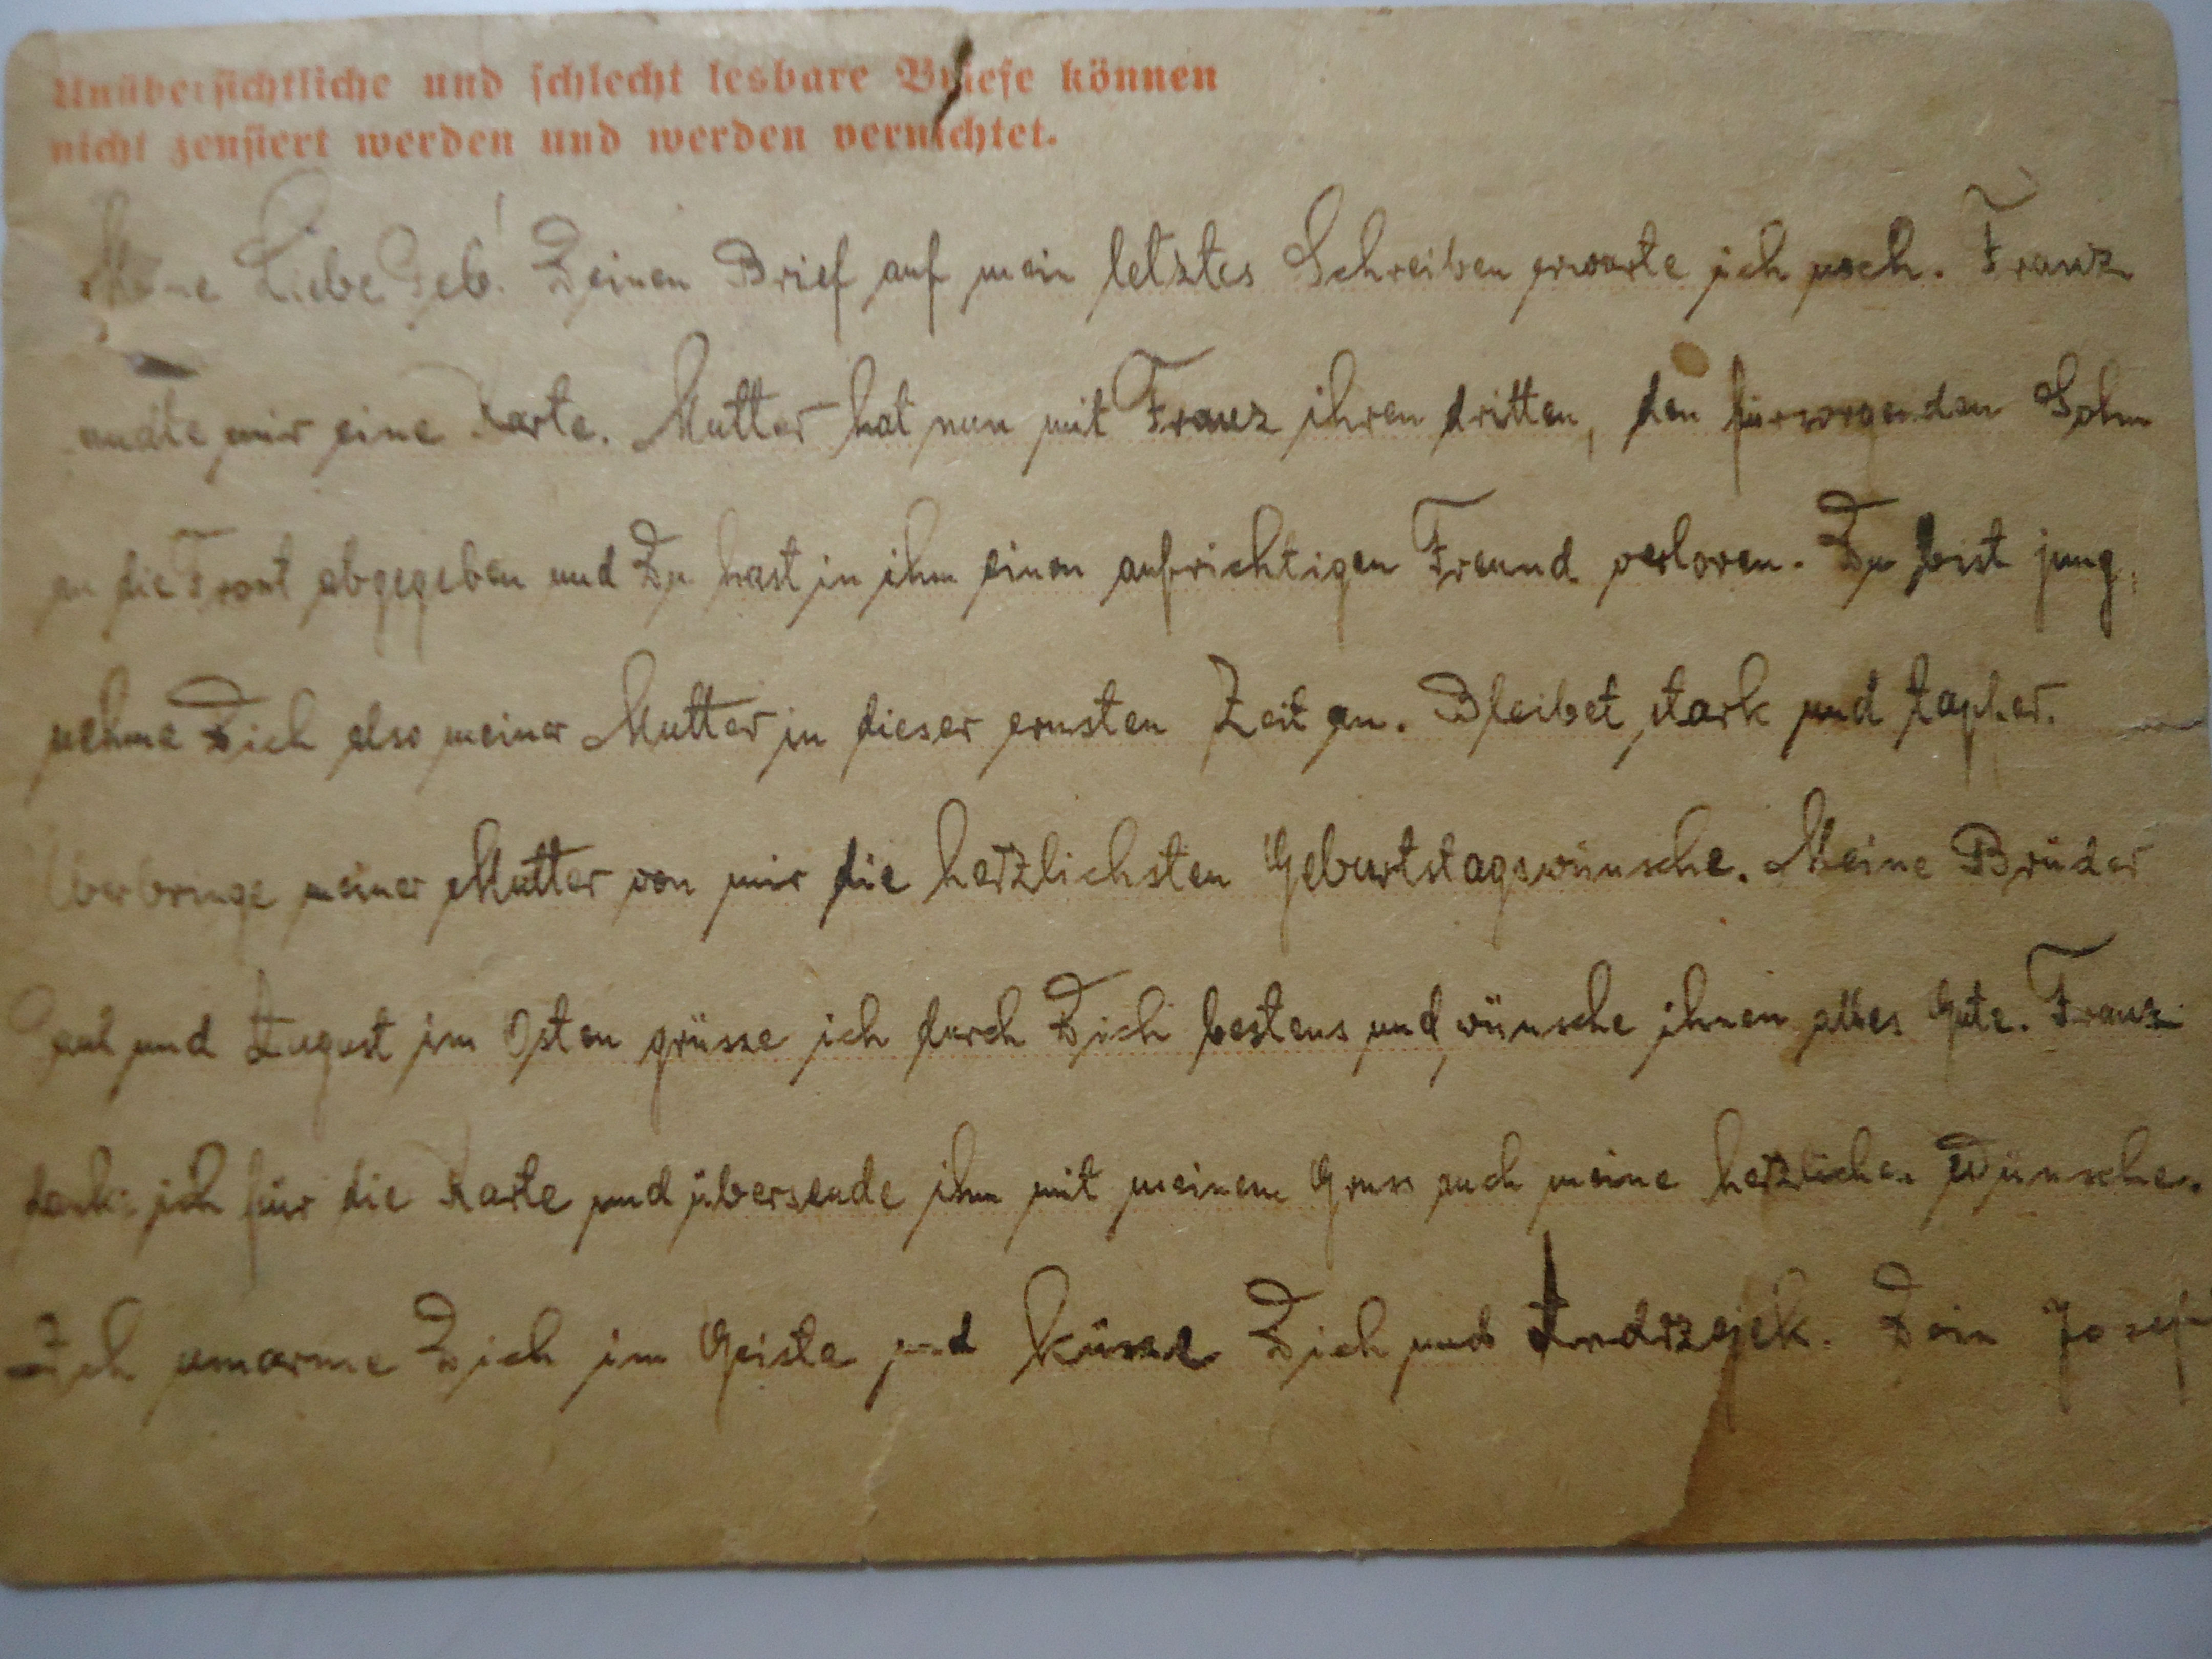 Unübersichtliche und schlecht lesbare Briefe können
nicht zensiert werden und werden vernichtet.
Meine Liebe Geb! Deinen Brief auf mein letztes Schreiben erwarte ich noch. Franz
andte mir eine Karte. Mutter hat nun mit Franz ihren dritten, den fürsorgenden Sohn
an die Front abgegeben und Du hast in ihm einen aufrichtigen Freund verloren. Du bist jung,
nehme Dich also meiner Mutter in dieser ernsten Zeit an. Bleibet stark und tapfer.
Überbringe meiner Mutter von mir die herzlichsten Geburtstagswünsche. Meine Brüder
Paul und August im Osten grüsse ich durch Dich bestens und wünsche ihnen alles Gute. Franz
danke ich für die Karte und übersende ihm mit meinem Gruss auch meine herzlichen Wünsche.
Ich umarme Dich im Geiste und küsse Dich und Andrzejek. Dein Josef